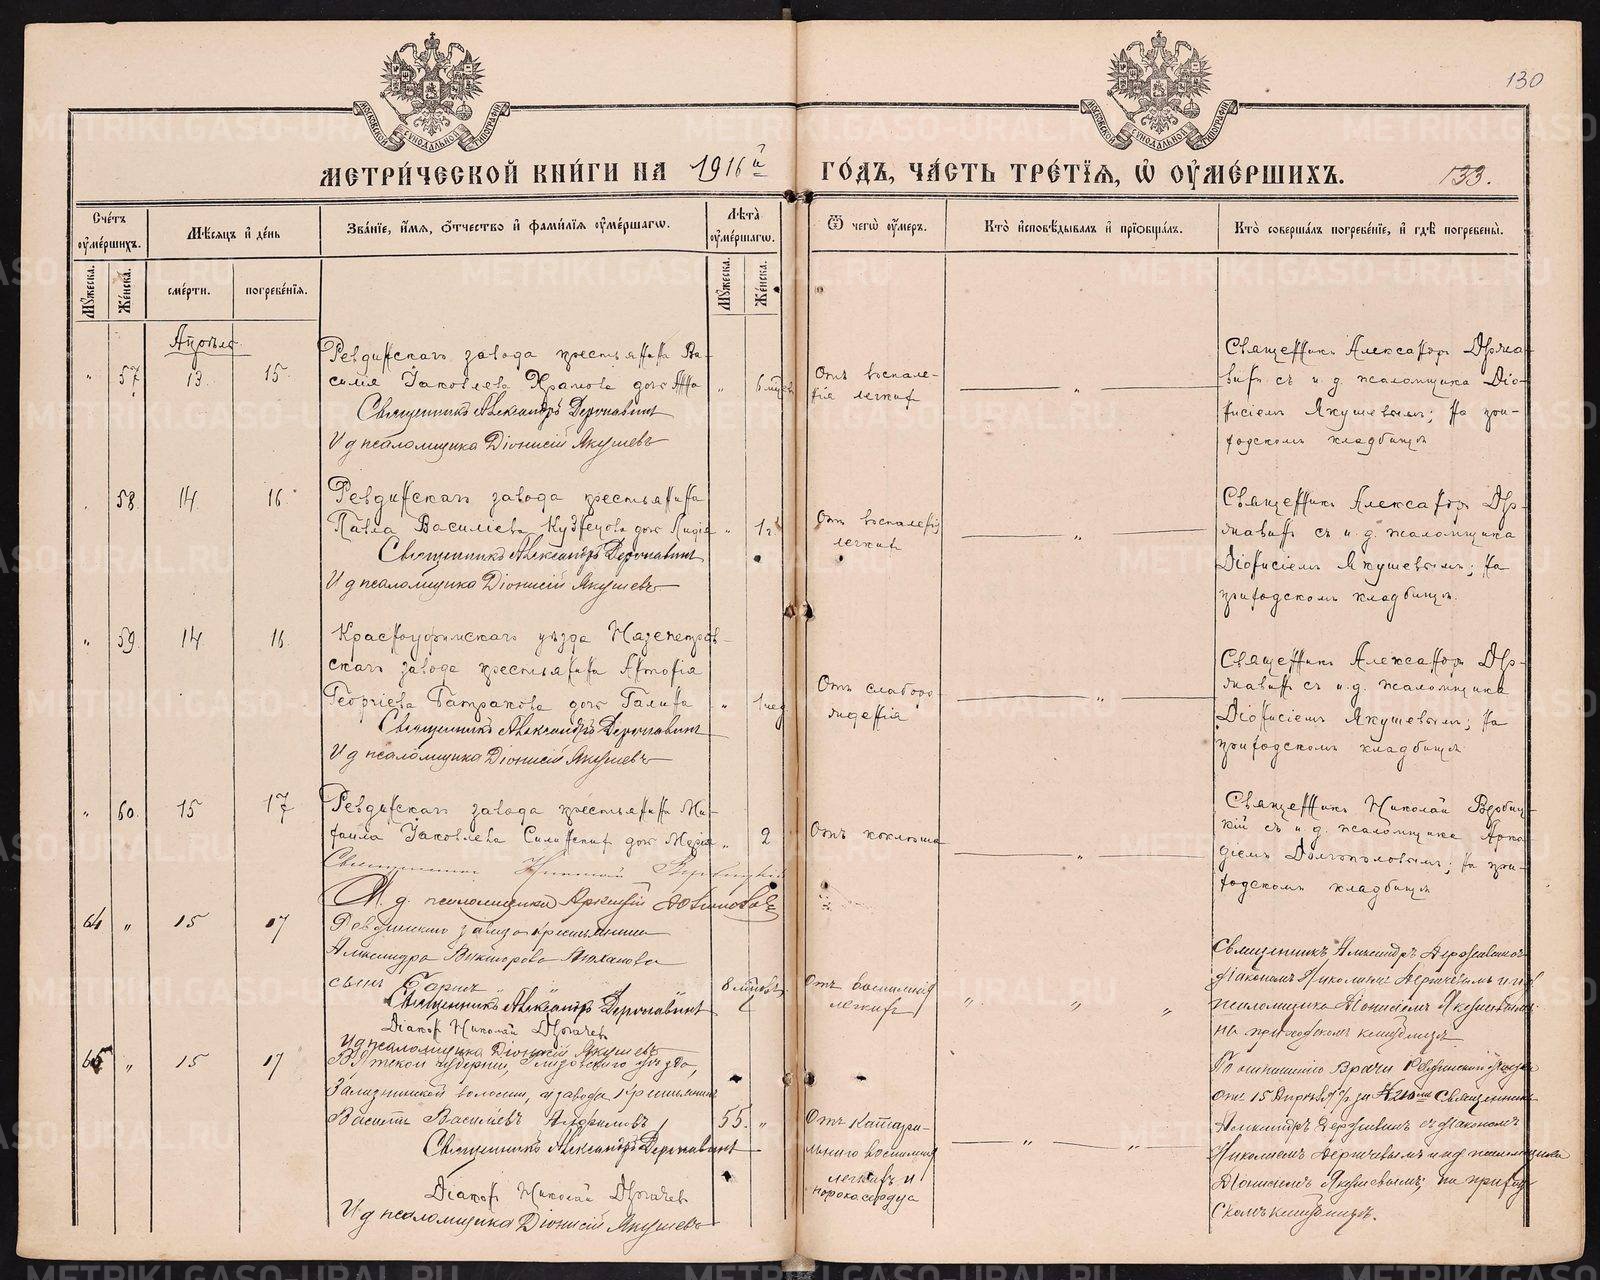 130
МЕТРИ́ЧЕСКОЙ КНИ́ГИ НА 1916 й
ГО́ДЪ, ЧА́СТЬ ТРЕ́ТЇѦ, Ѡ҆ ОУ҆МЕ́РШИХЪ.
133.
Сче́тъ оу҆ме́ршихъ.
Мѣ́сѧцъ и҆ де́нь
Зва́нїе, и҆́мѧ, ѻ҆́тчество и҆ фами́лїѧ оу҆ме́ршагѡ.
Лѣ́та оу҆ме́ршагѡ.
Ѿ чегѡ̀ оу҆́меръ.
Кто̀ и҆сповѣ́дывалъ и҆ прїѡбща́лъ.
Кто̀ соверша́лъ погребе́нїе, и҆ гдѣ̀ погребены̀.
Мꙋ́жеска.
Же́нска.
сме́рти.
погребе́нїѧ.
Мꙋ́жеска.
Же́нска.
Апрѣль
" 57 13 15
Ревдинскаго завода крестьянина Ва-
силія Іаковлева Храмова дочь Анна
" 6 мцев
Священникъ Александръ Державинъ
И д псаломщика Діонисій Якушевъ
Отъ воспале-
нія легких
"
Священник Александр Држа-
вин съ и. д. псаломщика Діо-
нисіем Якушевым; на при-
ходском кладбищѣ
58 14 16
Ревдинскаго завода крестьянина
Павла Васильева Кузнецова дочь Лидія
"
Священникъ Александръ Державинъ
И д псаломщика Діонисій Якушевъ
От воспаленія
легких
"
Священник Александр Др-
жавин съ и. д. псаломщика
Діонисіем Якушевым; на
приходском кладбищѣ.
" 59 14 16
Красноуфимскаго уѣзда Нязепетров-
скаго завода крестьянина
Георгіева Батракова дочь Галина
" 1 нед
Священникъ Александръ Державинъ
И д псаломщика Діонисій Якушевъ
Отъ слаборо
жденія
"
Священник Александр Др-
жавин съ и. д. псаломщика
Діонисіем Якушевым; на
приходском кладбищѣ
" 60. 15 17
Ревдинскаго завода крестьянина Ми-
хаила Іаковлева дочь Марія
" 2
Священник Николай Вербицкій
И. д. псаломщика Аркадій
Отъ коклюша
"
Священник Николай Вербиц-
кій съ и д. псаломщика Арка-
діем Долгополовым; на при-
ходском кладбищѣ
64 " 15 17
Ревдинскаго завода крестьянина
Александра Викторова
сынъ Борис
8
Священникъ Александръ Державинъ
Діакон Николай Дргачев
И д псаломщика Діонисій Якушевъ
Отъ воспаленія
легких
" " "
Священникъ Александръ Державинъ
діаконом Николаем Дергачевым и и д
псаломщика Діонисіем Якушевым
на приходском кладбищѣ
65 " 15 17
Вятской губерніи, Глазовскаго уѣзда,
волости, завода крестьянин
Василій Васильевъ
55. "
Священникъ Александръ Державинъ
Діакон Николай Дргачев
И д псаломщика Діонисій Якушевъ
Отъ катарра-
льнаго воспаленія
легких и
порока сердца
" "
По отношенію врача Ревдинскаго завода
отъ 15 Апрѣля за № 210 Священник
Александръ Державинъ съ діаконом
Николаем Дергачевым и и д псаломщика
Діонисіем Якушевым; на приход
ском кладбищѣ.